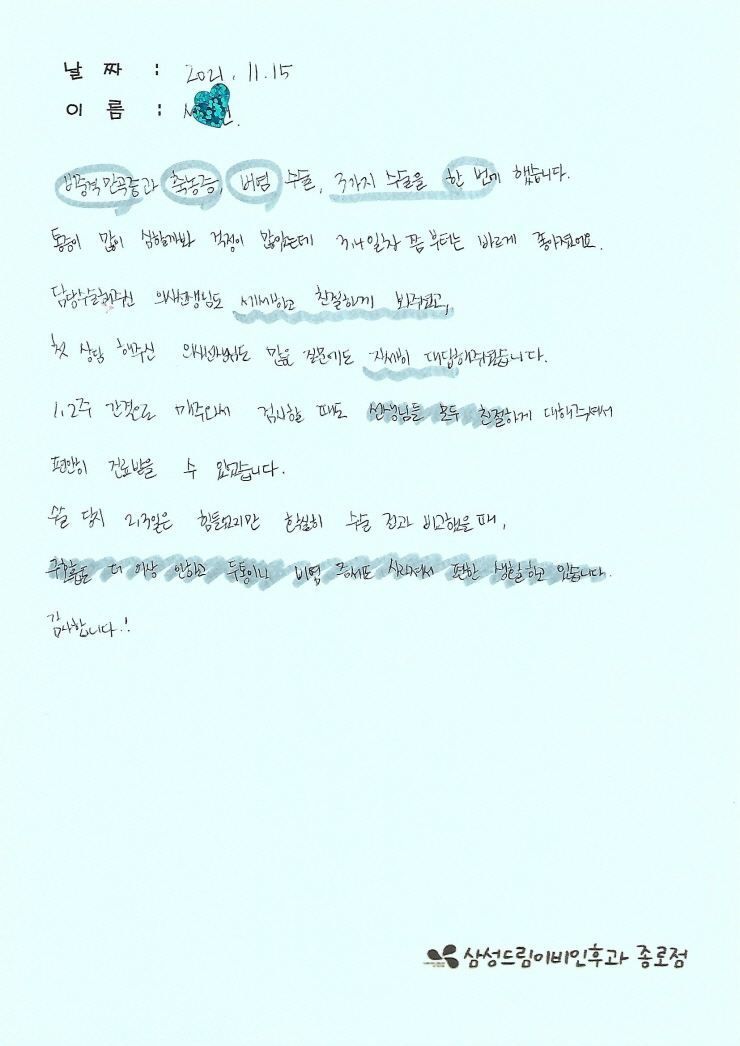 날 짜 : 2021. 11. 15
이 름 :
비중격만곡증과 축농증, 비염 수술, 3가지 수술을 한 번에 했습니다.
통증이 많이 심할까봐 걱정이 많았는데 3,4일차 쯤부터는 바르게 좋아졌어요.
담당수술해주신 의사선생님도 세세하고 친절하게 봐주셨고,
첫 상담 해주신 의사선생님도 많은 질문에도 자세히 대답해주셨습니다.
1,2주 간격으로 매주와서 검사할 때도 선생님들 모두 친절하게 대해주셔서
편안히 진료받을 수 있었습니다.
수술 당시 2,3일은 힘들었지만 확실히 수술 전과 비교했을 때,
구호흡을 더 이상 안하고 두통이나 비염 증세도 사라져서 편한 생활하고 있습니다.
감사합니다.!
삼성드림이비인후과 종로점